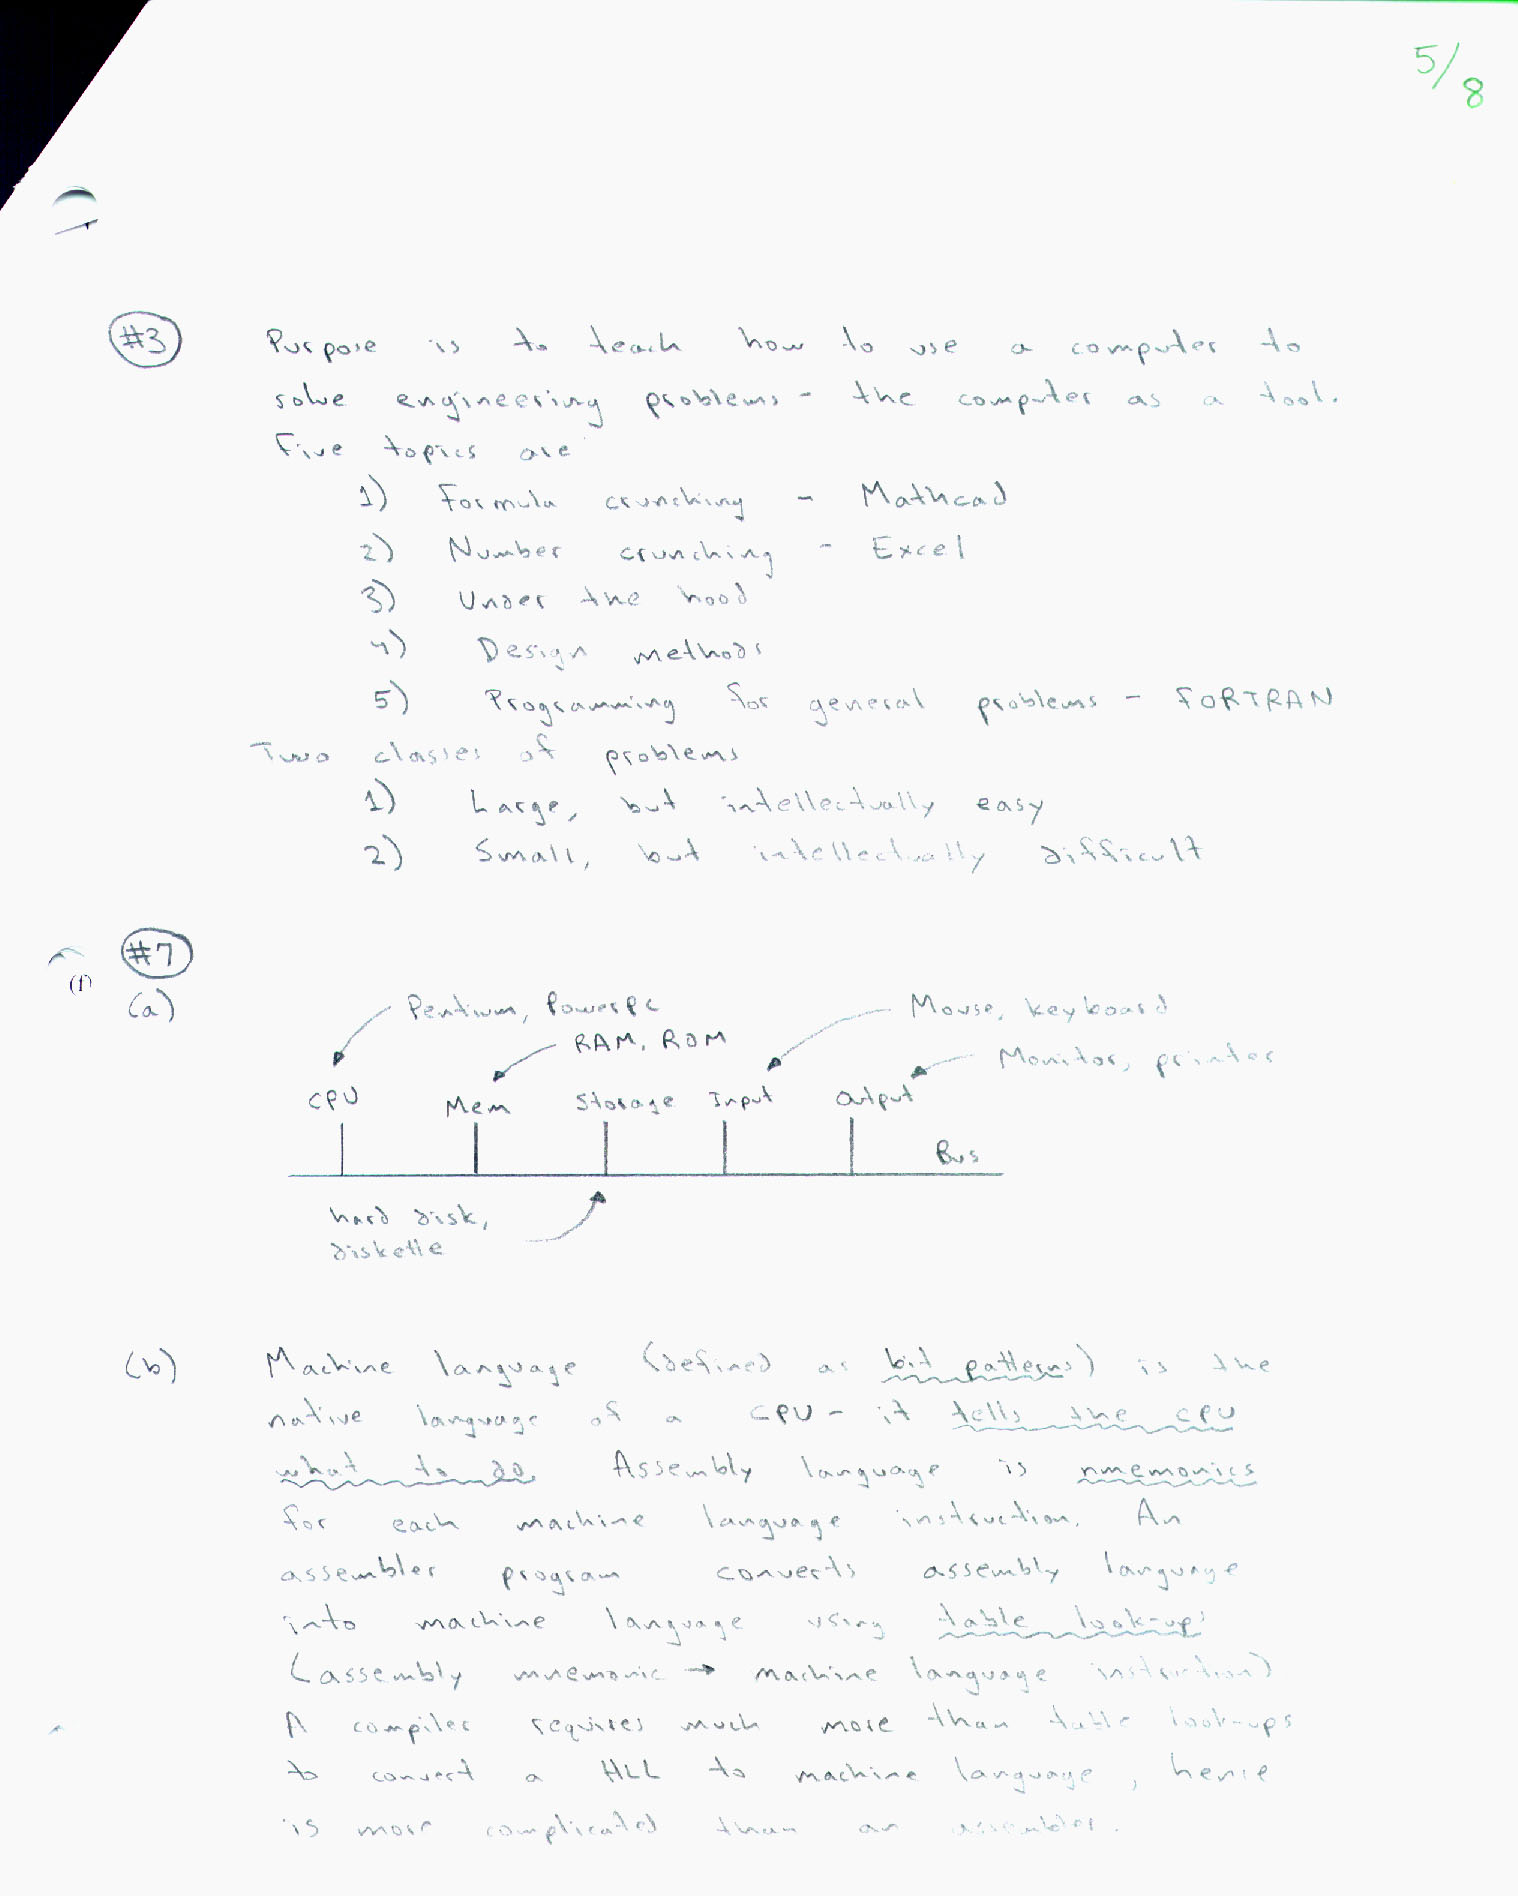 5/8
#3 Purpose is to teach how to use a computer to
solve engineering problems - the computer as a tool.
Five topics are
1) Formula crunching - Mathcad
2) Number crunching - Excel
3) Under the hood
4) Design methods
5) Programming for general problems - FORTRAN
Two classes of problems
1) Large, but intellectually easy
2) Small, but intellectually difficult
#7
(a)
Pentium, PowerPC
Mouse, keyboard
RAM, ROM
Monitor, printer
CPU Mem Storage Input Output
Bus
hard disk,
diskette
(b) Machine language (defined as bit patterns) is the
native language of a CPU - it tells the CPU
what to do. Assembly language is nmemonics
for each machine language instruction. An
assembler program converts assembly language
into machine language using table look-ups
(assembly mnemonic → machine language instruction)
A compiler requires much more than table look-ups
to convert a HLL to machine language, hence
is more complicated than an assembler.